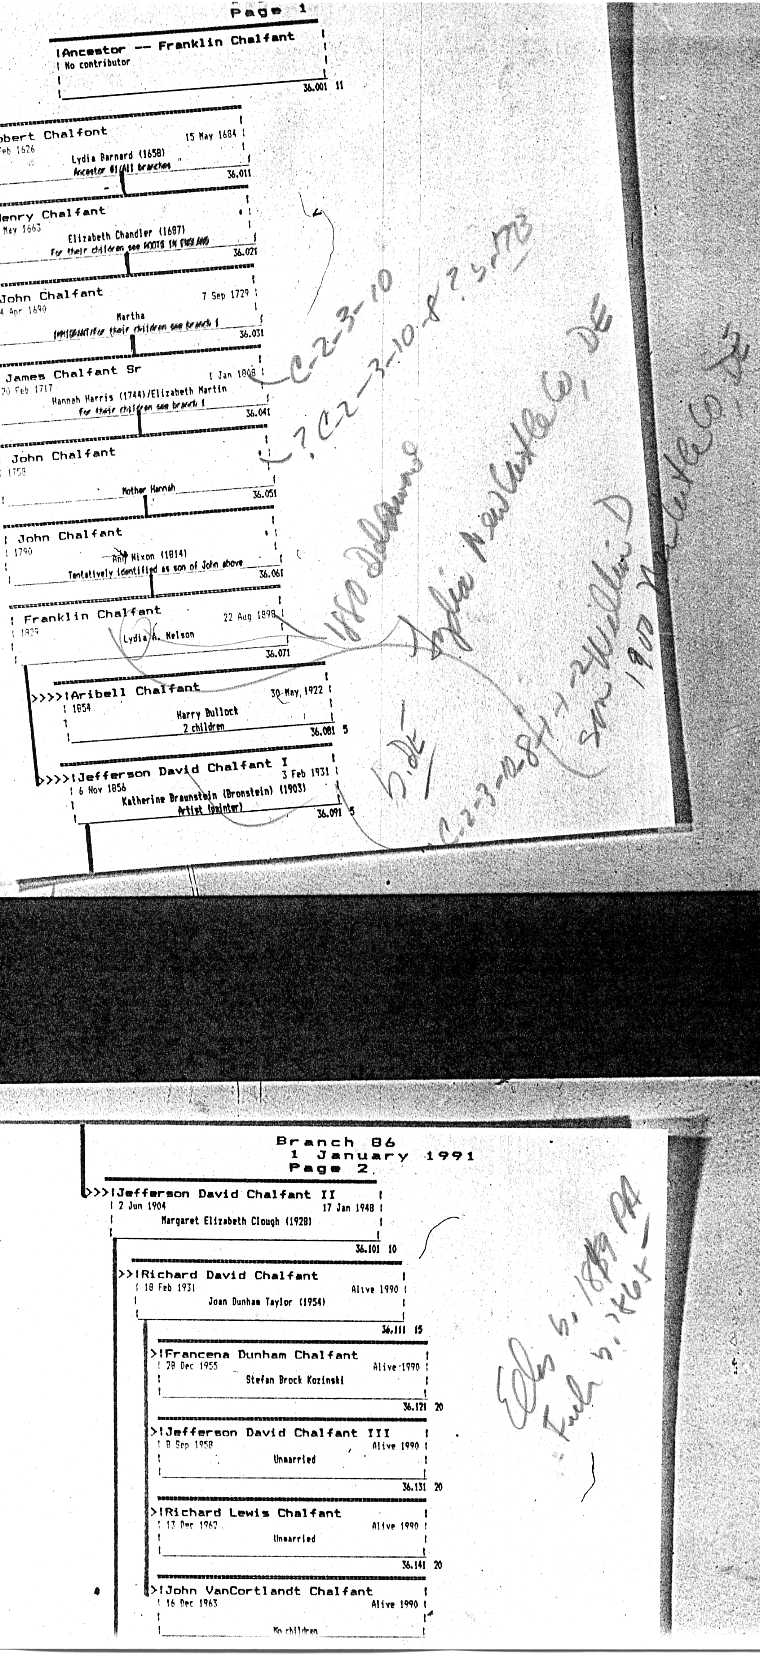 Page 1
Ancestor -- Franklin Chalfant
No contributor
36.001 11
obert Chalfont
Feb 1626 15 May 1684
Lydia Barnard (1658)
Ancestor 01/All branches
36.011
enry Chalfant
May 1663
Elizabeth Chandler (1687)
For their children see ROOTS IN ENGLAND
36.021
John Chalfant
4 Apr 1690 7 Sep 1729
Martha
IMMIGRANT/For their children see branch 1
36.031
James Chalfant Sr
20 Feb 1717 1 Jan 1808
Hannah Harris (1744)/Elizabeth Martin
For their children see branch 1
36.041
C-2-3-10
John Chalfant
1758
Mother Hannah
36.051
? C-2-3-10-8 ?
John Chalfant
1790
Nixon (1814)
Tentatively identified as son of John above
36.061
Franklin Chalfant
1829 22 Aug 1898
Lydia A. Nelson
36.071
1880 Delaware
Lydia New Castle Co, DE
son William D
1900 New Castle Co, DE
>>>>Aribell Chalfant
1854 30 May, 1922
Harry Bullock
2 children
36.081 5
>>>>Jefferson David Chalfant I
6 Nov 1856 3 Feb 1931
Katherine Braunstein (Bronstein) (1903)
Artist (painter)
36.091 5
b. DE
Branch 86
1 January 1991
Page 2
>>>Jefferson David Chalfant II
2 Jun 1904 17 Jan 1948
Margaret Elizabeth Clough (1928)
36.101 10
>>Richard David Chalfant
18 Feb 1931 Alive 1990
Joan Dunham Taylor (1954)
36.111 15
>Francena Dunham Chalfant
28 Dec 1955 Alive 1990
Stefan Brock Kozinski
36.121 20
>Jefferson David Chalfant III
8 Sep 1958 Alive 1990
Unmarried
36.131 20
>Richard Lewis Chalfant
13 Dec 1962 Alive 1990
Unmarried
36.141 20
>John VanCortlandt Chalfant
16 Dec 1963 Alive 1990
No children